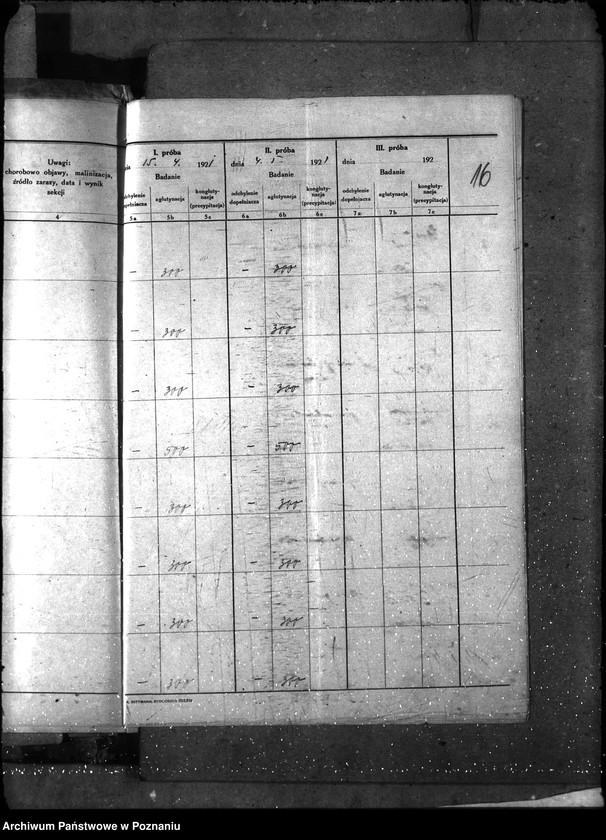 Uwagi:
chorobowo objawy, malinizacja,
źródło zarazy, data i wynik
sekcji
4
I. próba
15. 4. 1921
Badanie
aglutynacja
konglutynacja
(precypitacja)
5a 5b 5c
II. próba
dnia 4. 5 1921
Badanie
odchylenie
dopełniacza
aglutynacja
konglutynacja
(precypitacja)
6a 6b 6c
III. próba
dnia 192
Badanie
odchylenie
dopełniacza
aglutynacja
konglutynacja
(precypitacja)
7a 7b 7c
16
– 300 – 300
– 300 – 300
– 300 – 300
– 500 – 500
– 300 – 300
– 300 – 300
– 300 – 300
– 300 – 300
Archiwum Państwowe w Poznaniu